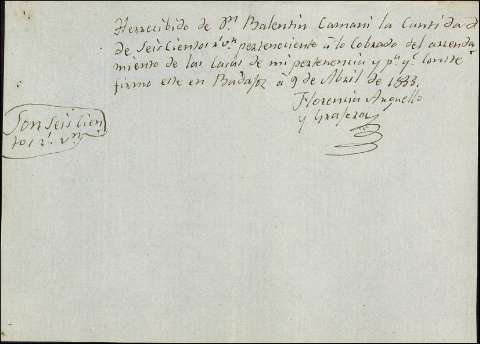 He rrecibido de Dn Balentin Camani la Cantida d
de Seis Cientos rs. vn. perteneciente à lo Cobrado del arrenda
miento de las Casas de mi pertenencia y pa. qe. Conste
firmo este en Badajoz à 9 de Abril de 1833.
Florencia Arguello
y Grajera
Son Seis Cien
tos rs. vn.